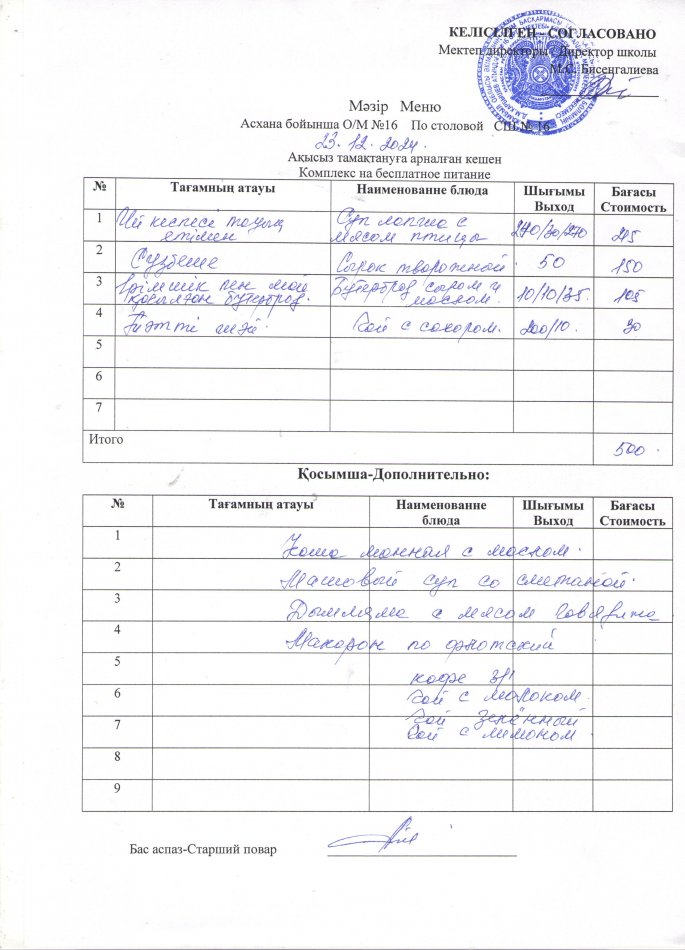 КЕЛІСІЛГЕН - СОГЛАСОВАНО
Мектеп директоры Директор школы
М.С. Бисенгалиева
Мәзір Меню
Асхана бойынша О/М №16 По столовой СШ № 16
23.12.2024.
Ақысыз тамақтануға арналған кешен
Комплекс на бесплатное питание
№ Тағамның атауы Наименование блюда Шығымы Выход Бағасы Стоимость
1 Үй кеспесі тауық етімен Суп лапша с мясом птицы 215
2 Сузбеше Сырок творожной 50 150
3 Ірімшік пен май қосылған бутерброд. Бутерброд сыром и маслом. 10/10/35. 105
4 Тәтті шәй. Чай с сахаром. 200/10. 30
5
6
7
Итого 500.
Қосымша-Дополнительно:
№ Тағамның атауы Наименование блюда Шығымы Выход Бағасы Стоимость
1 Каша манная с маслом.
2 Машовый суп со сметаной.
3 Дымляма с мясом говядина
4 Макарон по флотский
5 кофе 3/1
6 Чай с молоком.
7 Чай зелённый
Чай с лимоном
8
9
Бас аспаз-Старший повар